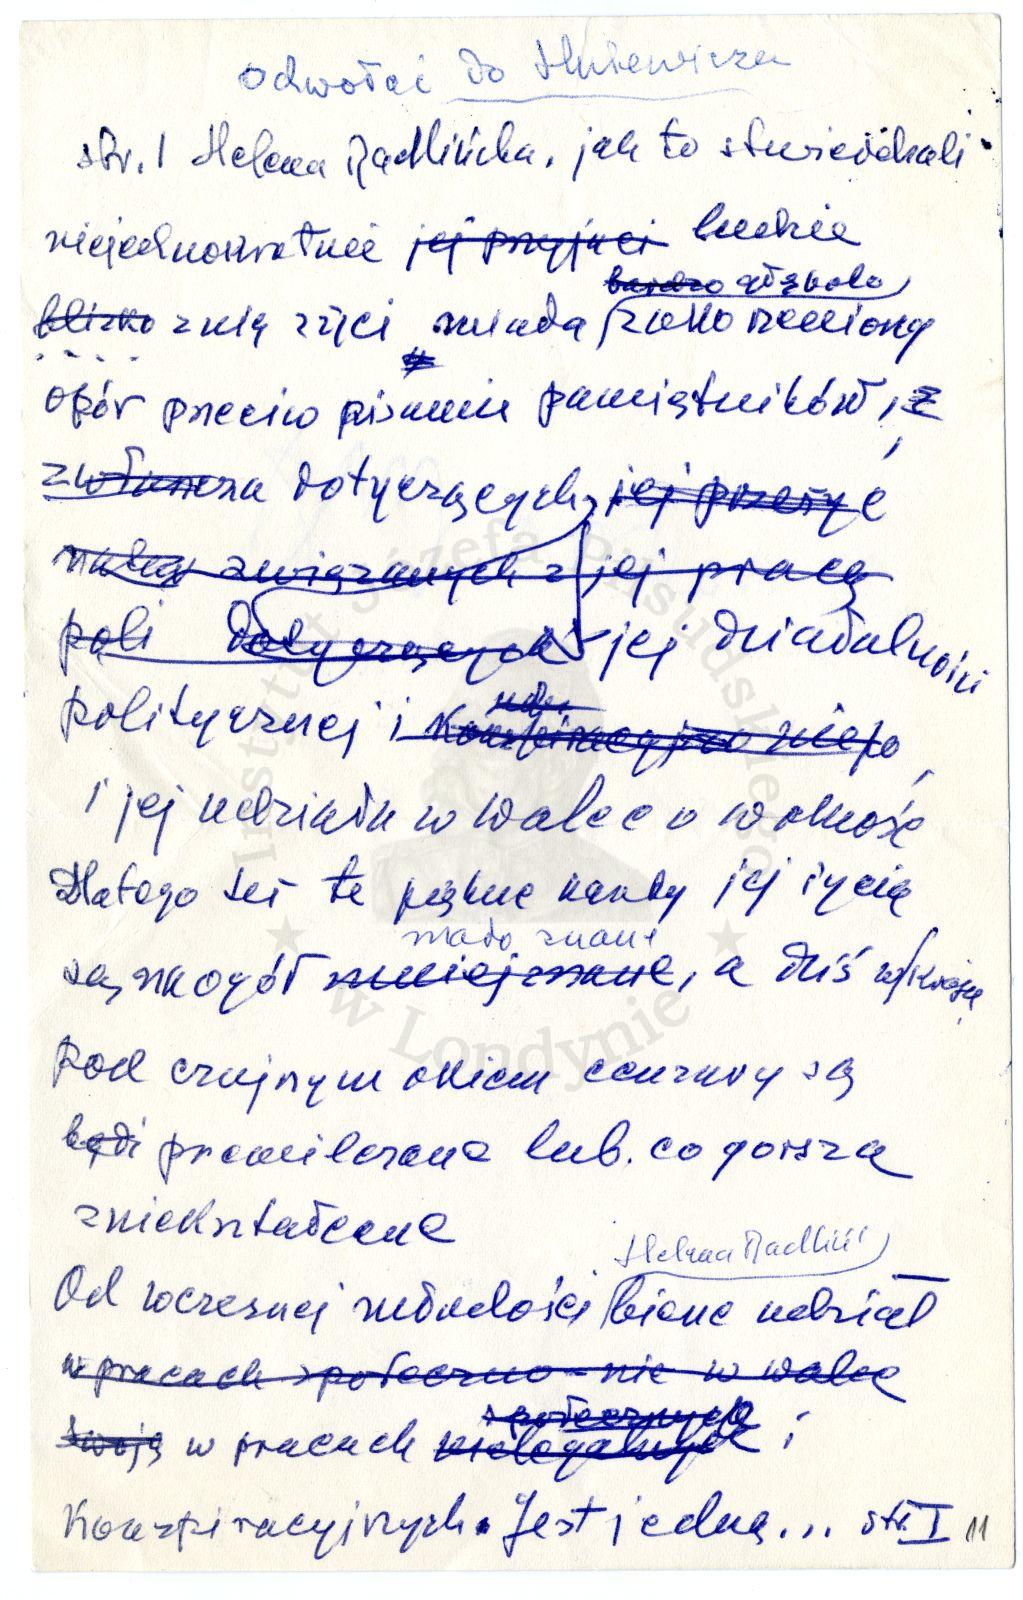 Odwołać do
str. 1 Helena Radlińska, jak to stwierdzali
niejednokrotnie jej przyjaci ludzie
bardzo głęboko
blizko z nią zżyci miała zakorzeniony
opór przeciw pisaniu pamiętników, z
zwłaszcza dotyczących jej przeżyć
związanych z jej pracą
poli dotyczących jej działalności
politycznej i konspiracyjno niepo
i jej udziału w walce o wolność
Dlatego też te piękne karty jej życia
mało znane
są na ogół mniej znane, a dziś w kraju
pod czujnym okiem cenzury są
bądź przemilczane lub. co gorsza
zniekształcane
Helena Radliń
Od wczesnej młodości bierze udział
w pracach społeczno - nie w walce
społecznych
swoją w pracach nielegalnych i
Konspiracyjnych. Jest jedną... str. I 11
Instytut Józefa Piłsudskiego
w Londynie